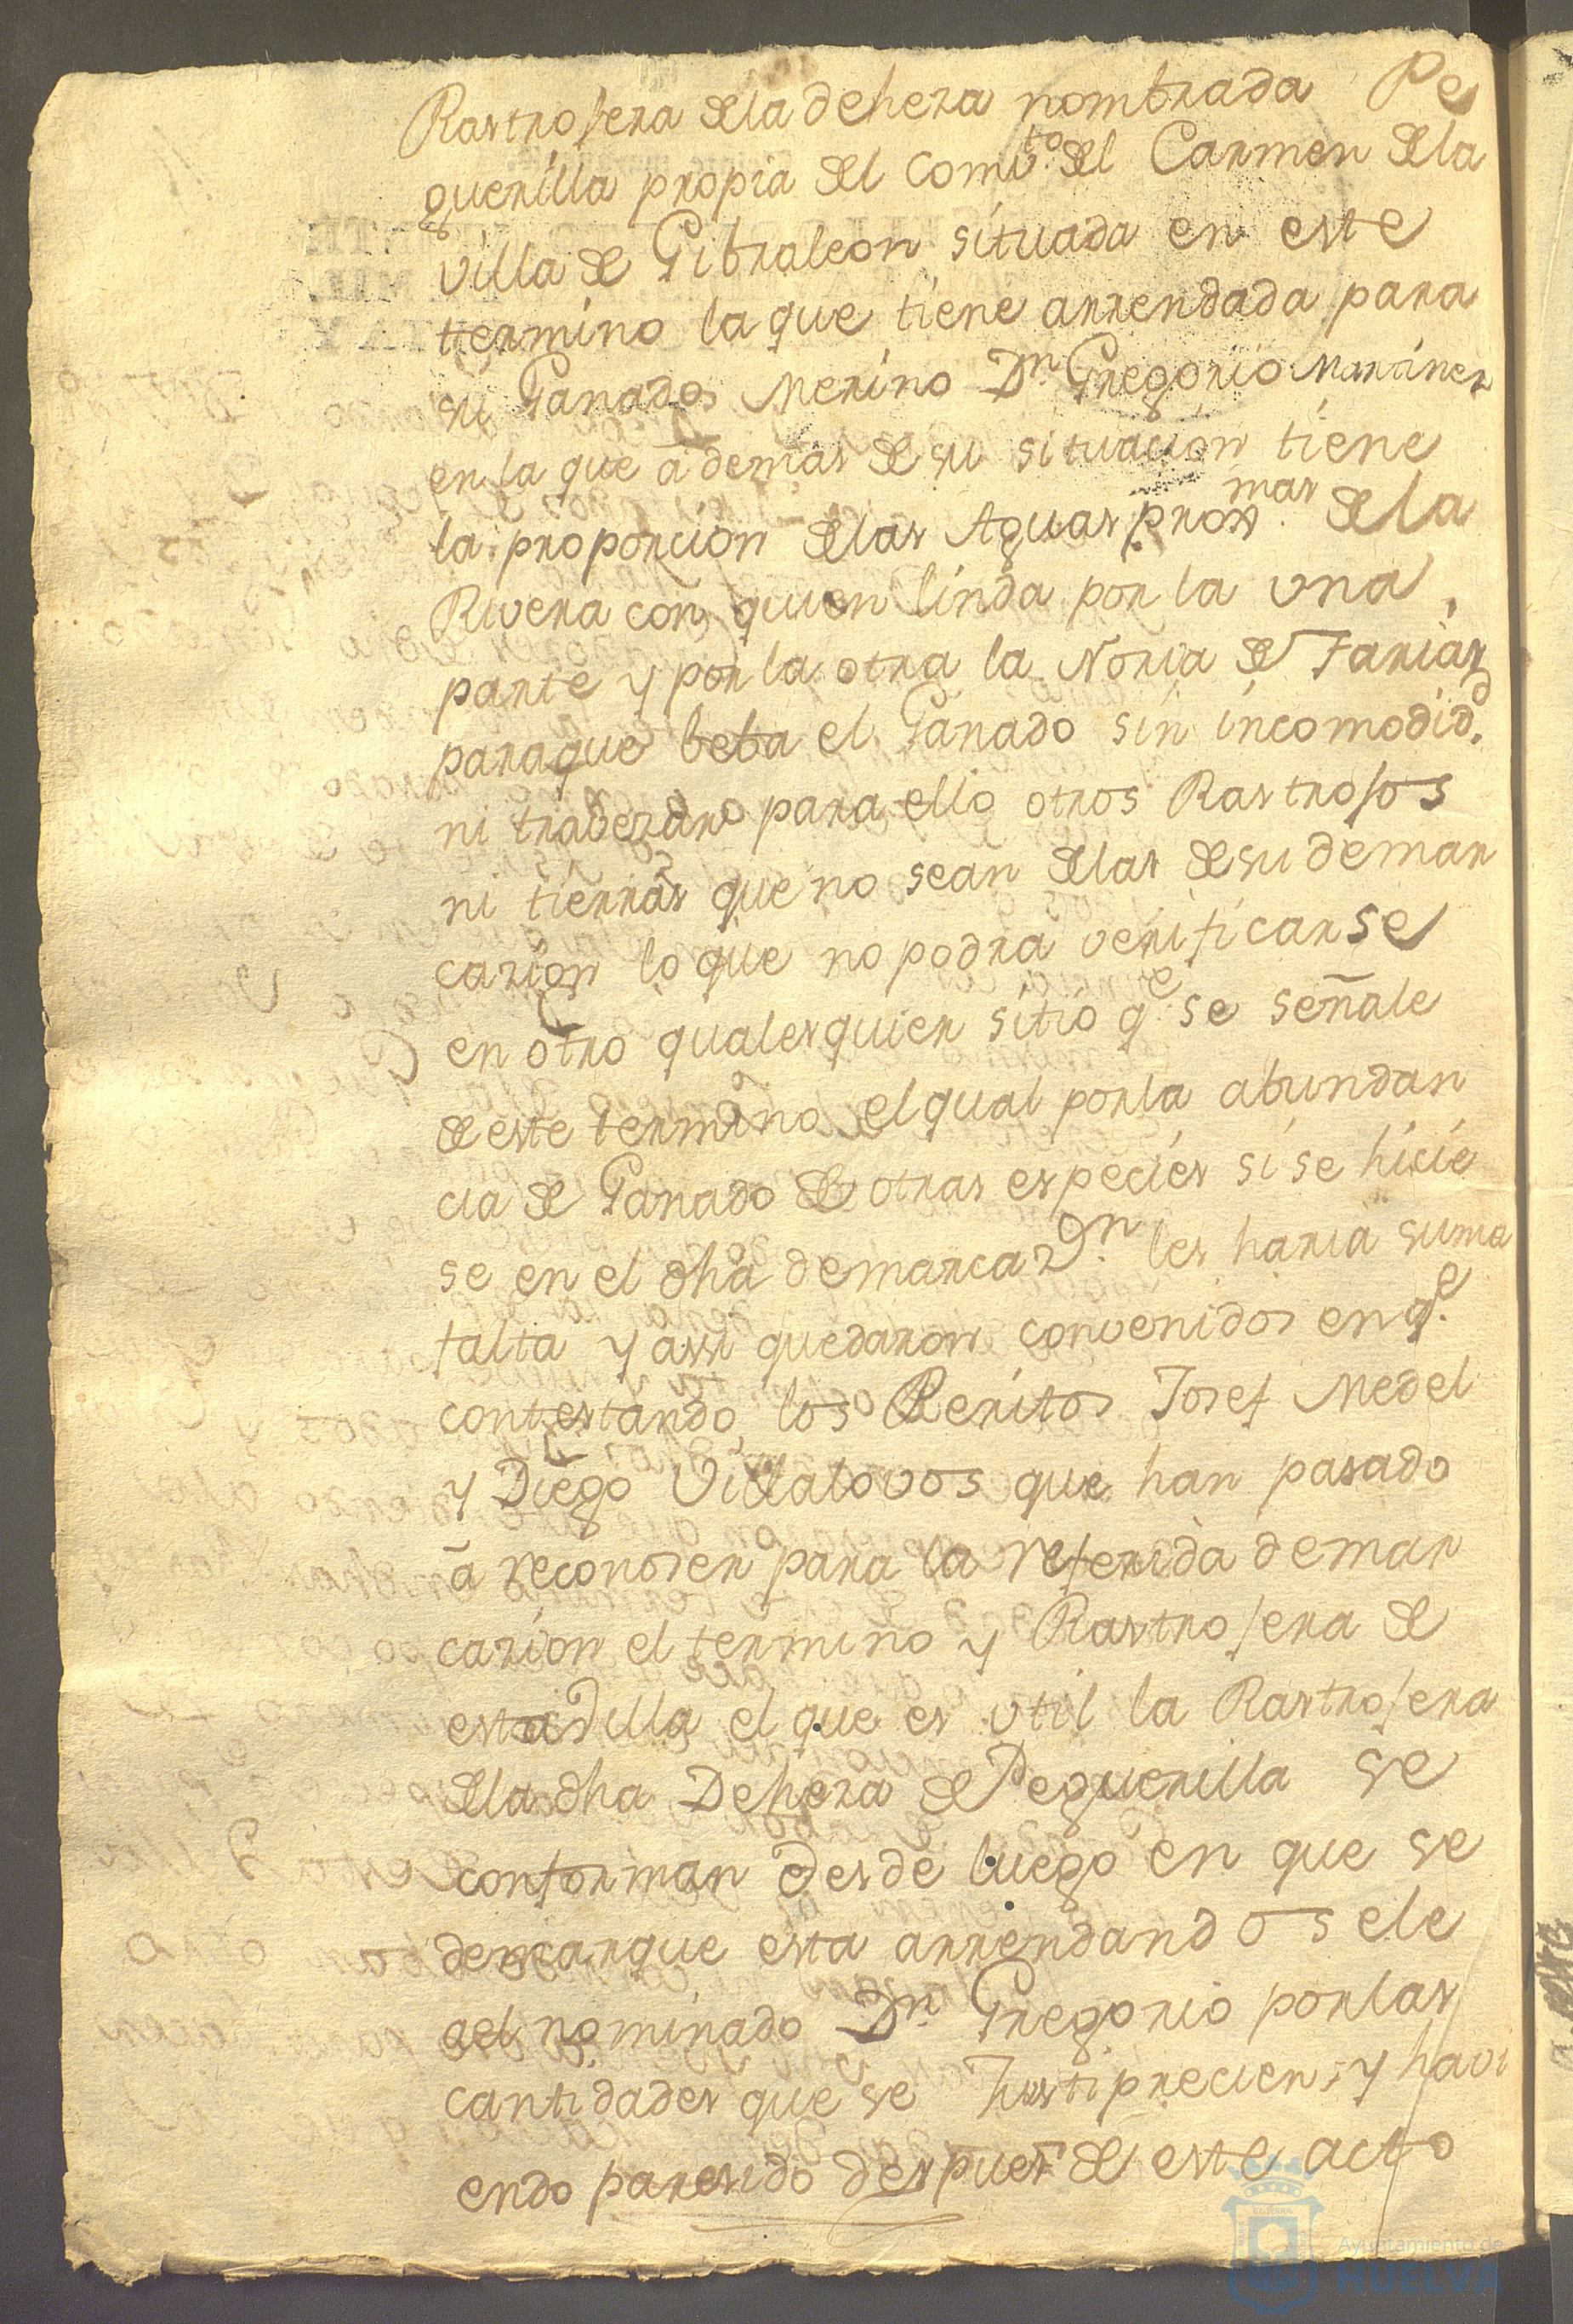 Rastrojera de la deheza nombrada Pe
guerilla propia del Comb.to del Carmen de la
villa de Gibraleon situada en este
termino la que tiene arrendada para
su Ganado Merino Dn. Gregorio Martinez
en la que ademas de su situacion tiene
la proporcion de las Aguas prox.mas de la
Rivera con quien linda por la una
parte y por la otra la Noria de Farias
para que beba el Ganado sin incomodid.d
ni trabezar para ello otros Rastrojos
ni tierras que no sean de las de su demar
cazion lo que no podra verificarse
en otro qualesquier sitio q.e se señale
de este termino el qual por la abundan
cia de Ganado de otras especies si se hicie
se en el dha demarcaz.on les haria suma
falta y assi quedaron convenidos en q.e
contestando los Peritos Josef Medel
y Diego Villalovos que han pasado
a reconoser para la referida demar
cazion el termino y Rastrojera de
esta Villa el que es util la Rastrojera
de la dha Deheza de Peguerilla se
conforman desde luego en que se
demarque esta arrendandosele
ael nominado Dn. Gregorio por las
cantidades que se Justiprecien, y havi
endo paresido despues de este acto
Ayuntamiento de
HUELVA